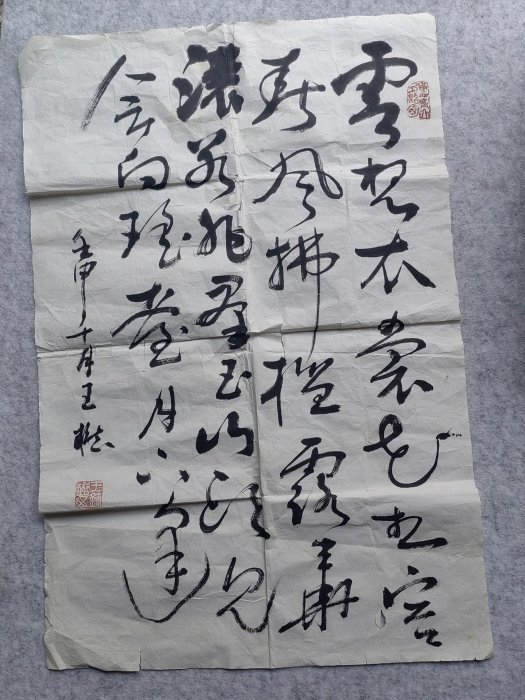 雲想衣裳花想容
春風拂檻露華
濃若非群玉山頭見
会向瑤臺月下逢
壬申十月王